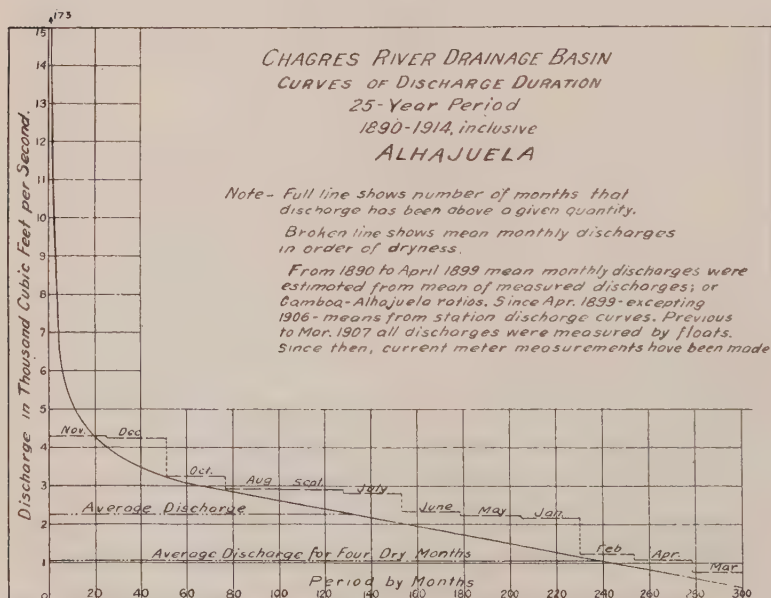 173
CHAGRES RIVER DRAINAGE BASIN
CURVES OF DISCHARGE DURATION
25-Year Period
1890-1914, inclusive
ALHAJUELA
Note- Full line shows number of months that
discharge has been above a given quantity.
Broken line shows mean monthly discharges
in order of dryness.
From 1890 to April 1899 mean monthly discharges were
estimated from mean of measured discharges; or
Gamboa-Alhajuela ratios. Since Apr. 1899-excepting
1906- means from station discharge curves. Previous
to Mar. 1907 all discharges were measured by floats.
Since then, current meter measurements have been made
Discharge in Thousand Cubic Feet per Second.
15
14
13
12
11
10
9
8
7
6
5
4
3
2
1
0
Nov. Dec. Oct. Aug Sept. July June May Jan. Feb Apr. Mar
Average Discharge
Average Discharge for Four Dry Months
Period by Months
20 40 60 80 100 120 140 160 180 200 220 240 260 280 300